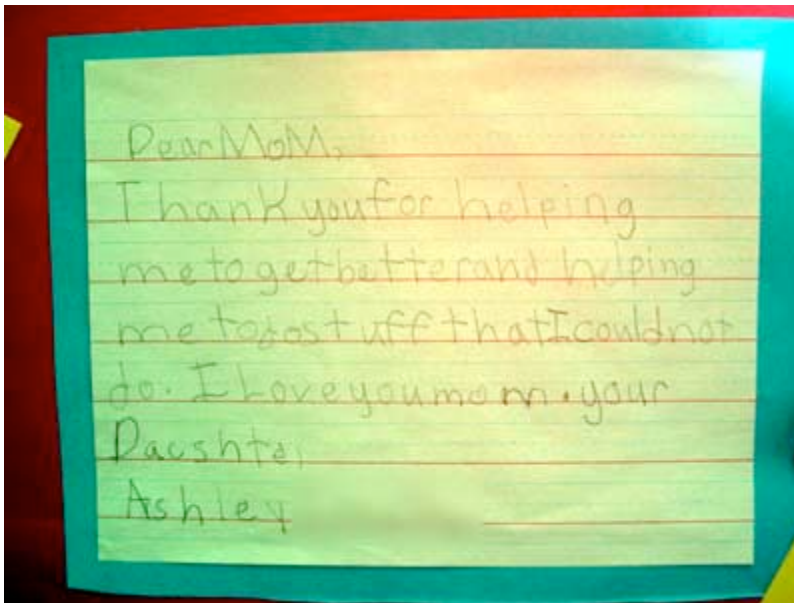 Dear MoM,
Thank you for helping
me to get better and helping
me to do stuff that I could not
do. I Love you mom. your
Dacshter
Ashley